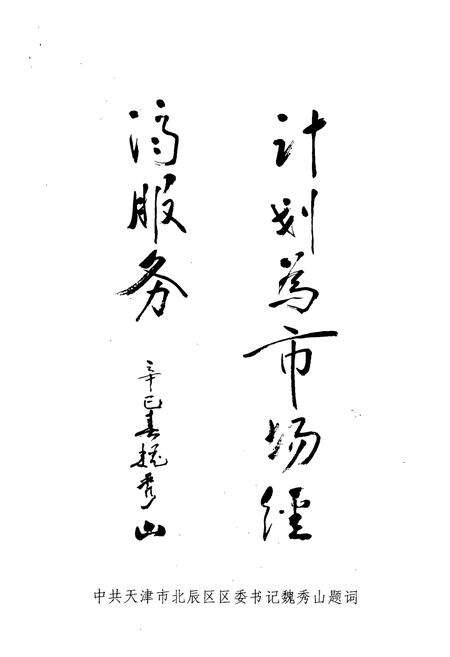 计划為市场經
济服务
辛巳春魏秀山
中共天津市北辰区区委书记魏秀山题词